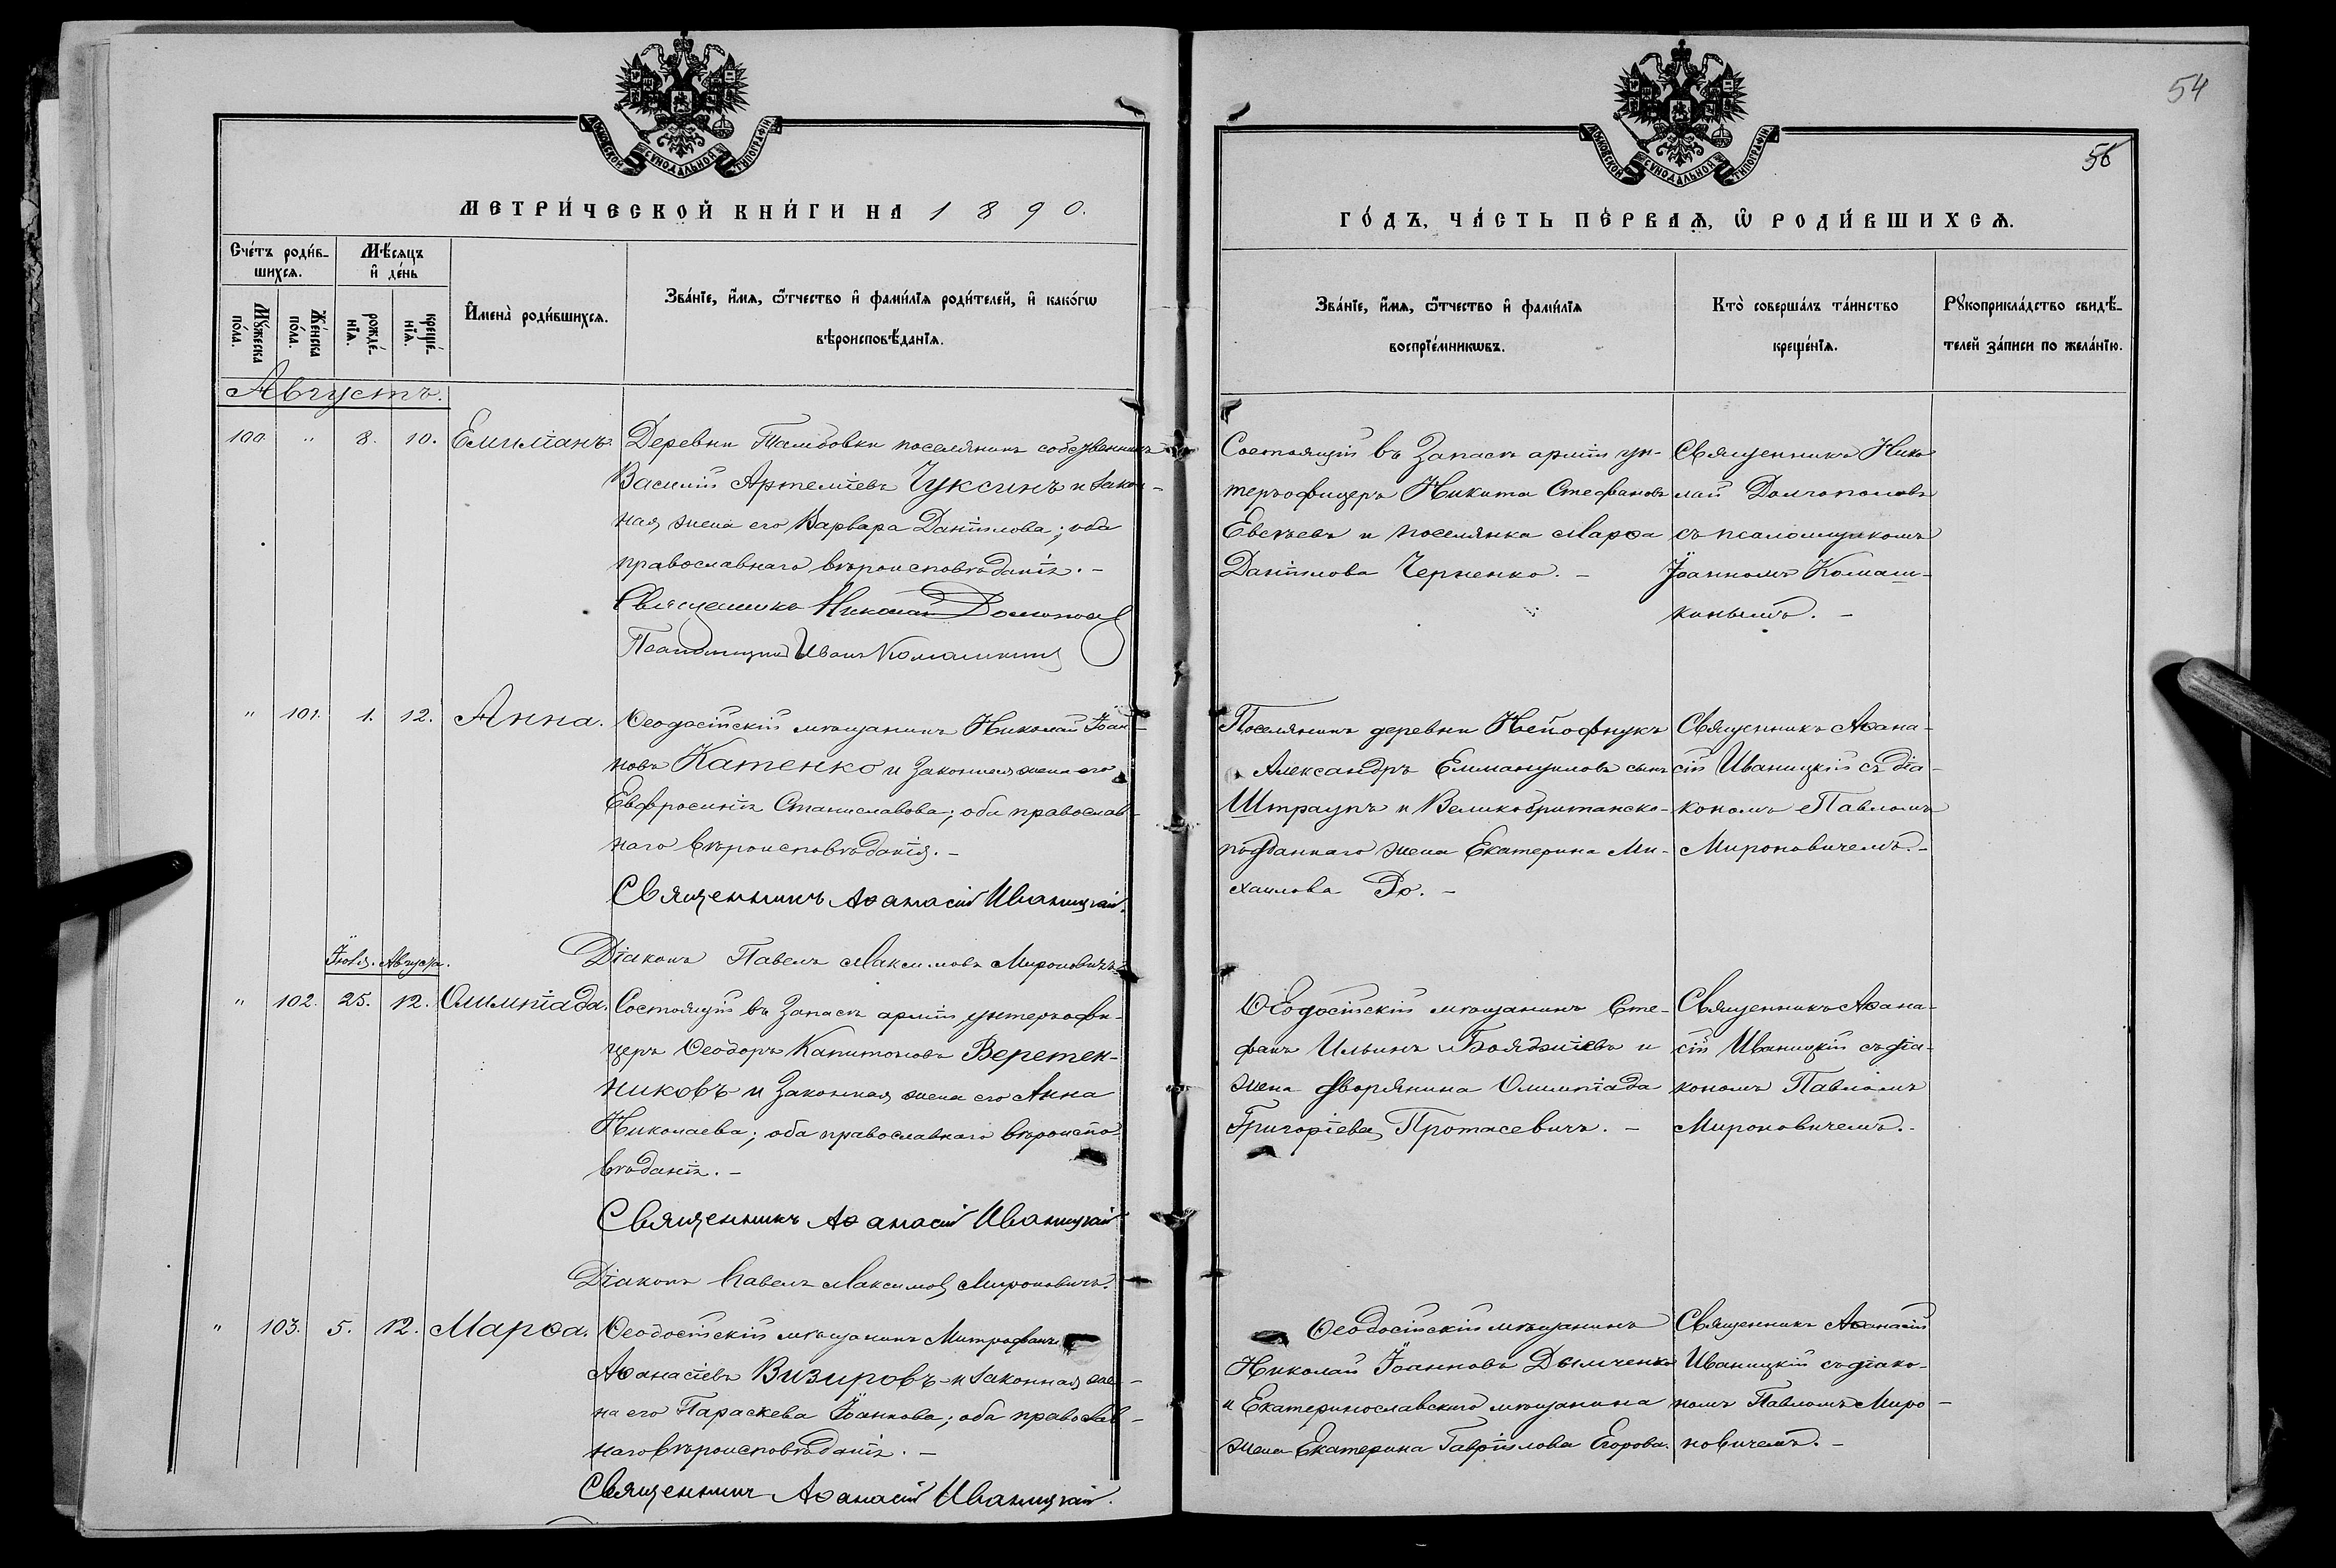 54
56
МОСКОВСКОЙ СѴНОДАЛЬНОЙ ТИПОГРАФІИ
МЕТРИ́ЧЕСКОЙ КНИ́ГИ НА 1890.
Счéтъ роди́в-
шихсѧ.
Мѣ́сѧцъ
и҆ де́нь
Мꙋ́жеска по́ла.
Же́нска по́ла.
рожде́-
нїѧ.
креще́-
нїѧ.
И҆мена̀ роди́вшихсѧ.
Зва́нїе, и҆́мѧ, ѻ҆́тчество и҆ фами́лїѧ роди́телей, и҆ како́гѡ
вѣроисповѣ́данїѧ.
Августъ.
100. " 8. 10. Емиліанъ.
Деревни Тамбовки поселянинъ собственникъ
Василій Артеміевъ Чуксинъ и закон-
ная жена его Варвара Даніилова; оба
православнаго вѣроисповѣданія. -
Священникъ Николай Долгополовъ
Псаломщикъ Иванъ Комашкинъ
" 101. 1. 12. Анна.
Ѳеодосійскій мѣщанинъ Николай Іоан-
новъ Катенко и законная жена его
Евфросинія Станиславова; оба православ-
наго вѣроисповѣданія. -
Священникъ Аѳанасій Иваницкій.
Діаконъ Павелъ Максимовъ Мироновичъ.
Іюля. Августа.
" 102. 25. 12. Олимпіада.
Состоящій въ запасѣ арміи унтеръ-офи-
церъ Ѳеодоръ Капитоновъ Веретен-
никовъ и законная жена его Анна
Николаева; оба православнаго вѣроиспо-
вѣданія. -
Священникъ Аѳанасій Иваницкій
Діаконъ Павелъ Максимовъ Мироновичъ.
" 103. 5. 12. Марѳа.
Ѳеодосійскій мѣщанинъ Митрофанъ
Аѳанасіевъ Визировъ и законная же-
на его Параскева Іоаннова; оба православ-
наго вѣроисповѣданія. -
Священникъ Аѳанасій Иваницкій.
МОСКОВСКОЙ СѴНОДАЛЬНОЙ ТИПОГРАФІИ
ГО́ДЪ, ЧА́СТЬ ПЕ́РВАѦ, Ѡ҆ РОДИ́ВШИХСѦ.
Зва́нїе, и҆́мѧ, ѻ҆́тчество и҆ фами́лїѧ
воспрїе́мникѡвъ.
Кто̀ соверша́лъ та́инство
креще́нїѧ.
Рꙋкоприкла́дство свидѣ́-
телей за́писи по жела́нїю.
Состоящій въ запасѣ арміи ун-
теръ-офицеръ Никита Стефановъ
Евсѣевъ и поселянка Марѳа
Даніилова Черненко. -
Священникъ Нико
лай Долгополовъ
съ псаломщикомъ
Іоанномъ Комаш-
кинымъ. -
Поселянинъ деревни Нейофнукъ
Александръ Еммануиловъ сынъ
Штраупъ и Великобританско-
подданнаго жена Екатерина Ми-
хаилова До. -
Священникъ Аѳана-
сій Иваницкій съ діа-
кономъ Павломъ
Мироновичемъ. -
Ѳеодосійскій мѣщанинъ Сте-
фанъ Ильинъ Бояджіевъ и
жена дворянина Олимпіада
Григоріева Протасевичъ. -
Священникъ Аѳана-
сій Иваницкій съ діа-
кономъ Павломъ
Мироновичемъ. -
Ѳеодосійскій мѣщанинъ
Николай Іоанновъ Дымченко
и Екатеринославскаго мѣщанина
жена Екатерина Гавріилова Егорова.
Священникъ Аѳанасій
Иваницкій съ діако-
номъ Павломъ Миро-
новичемъ. -